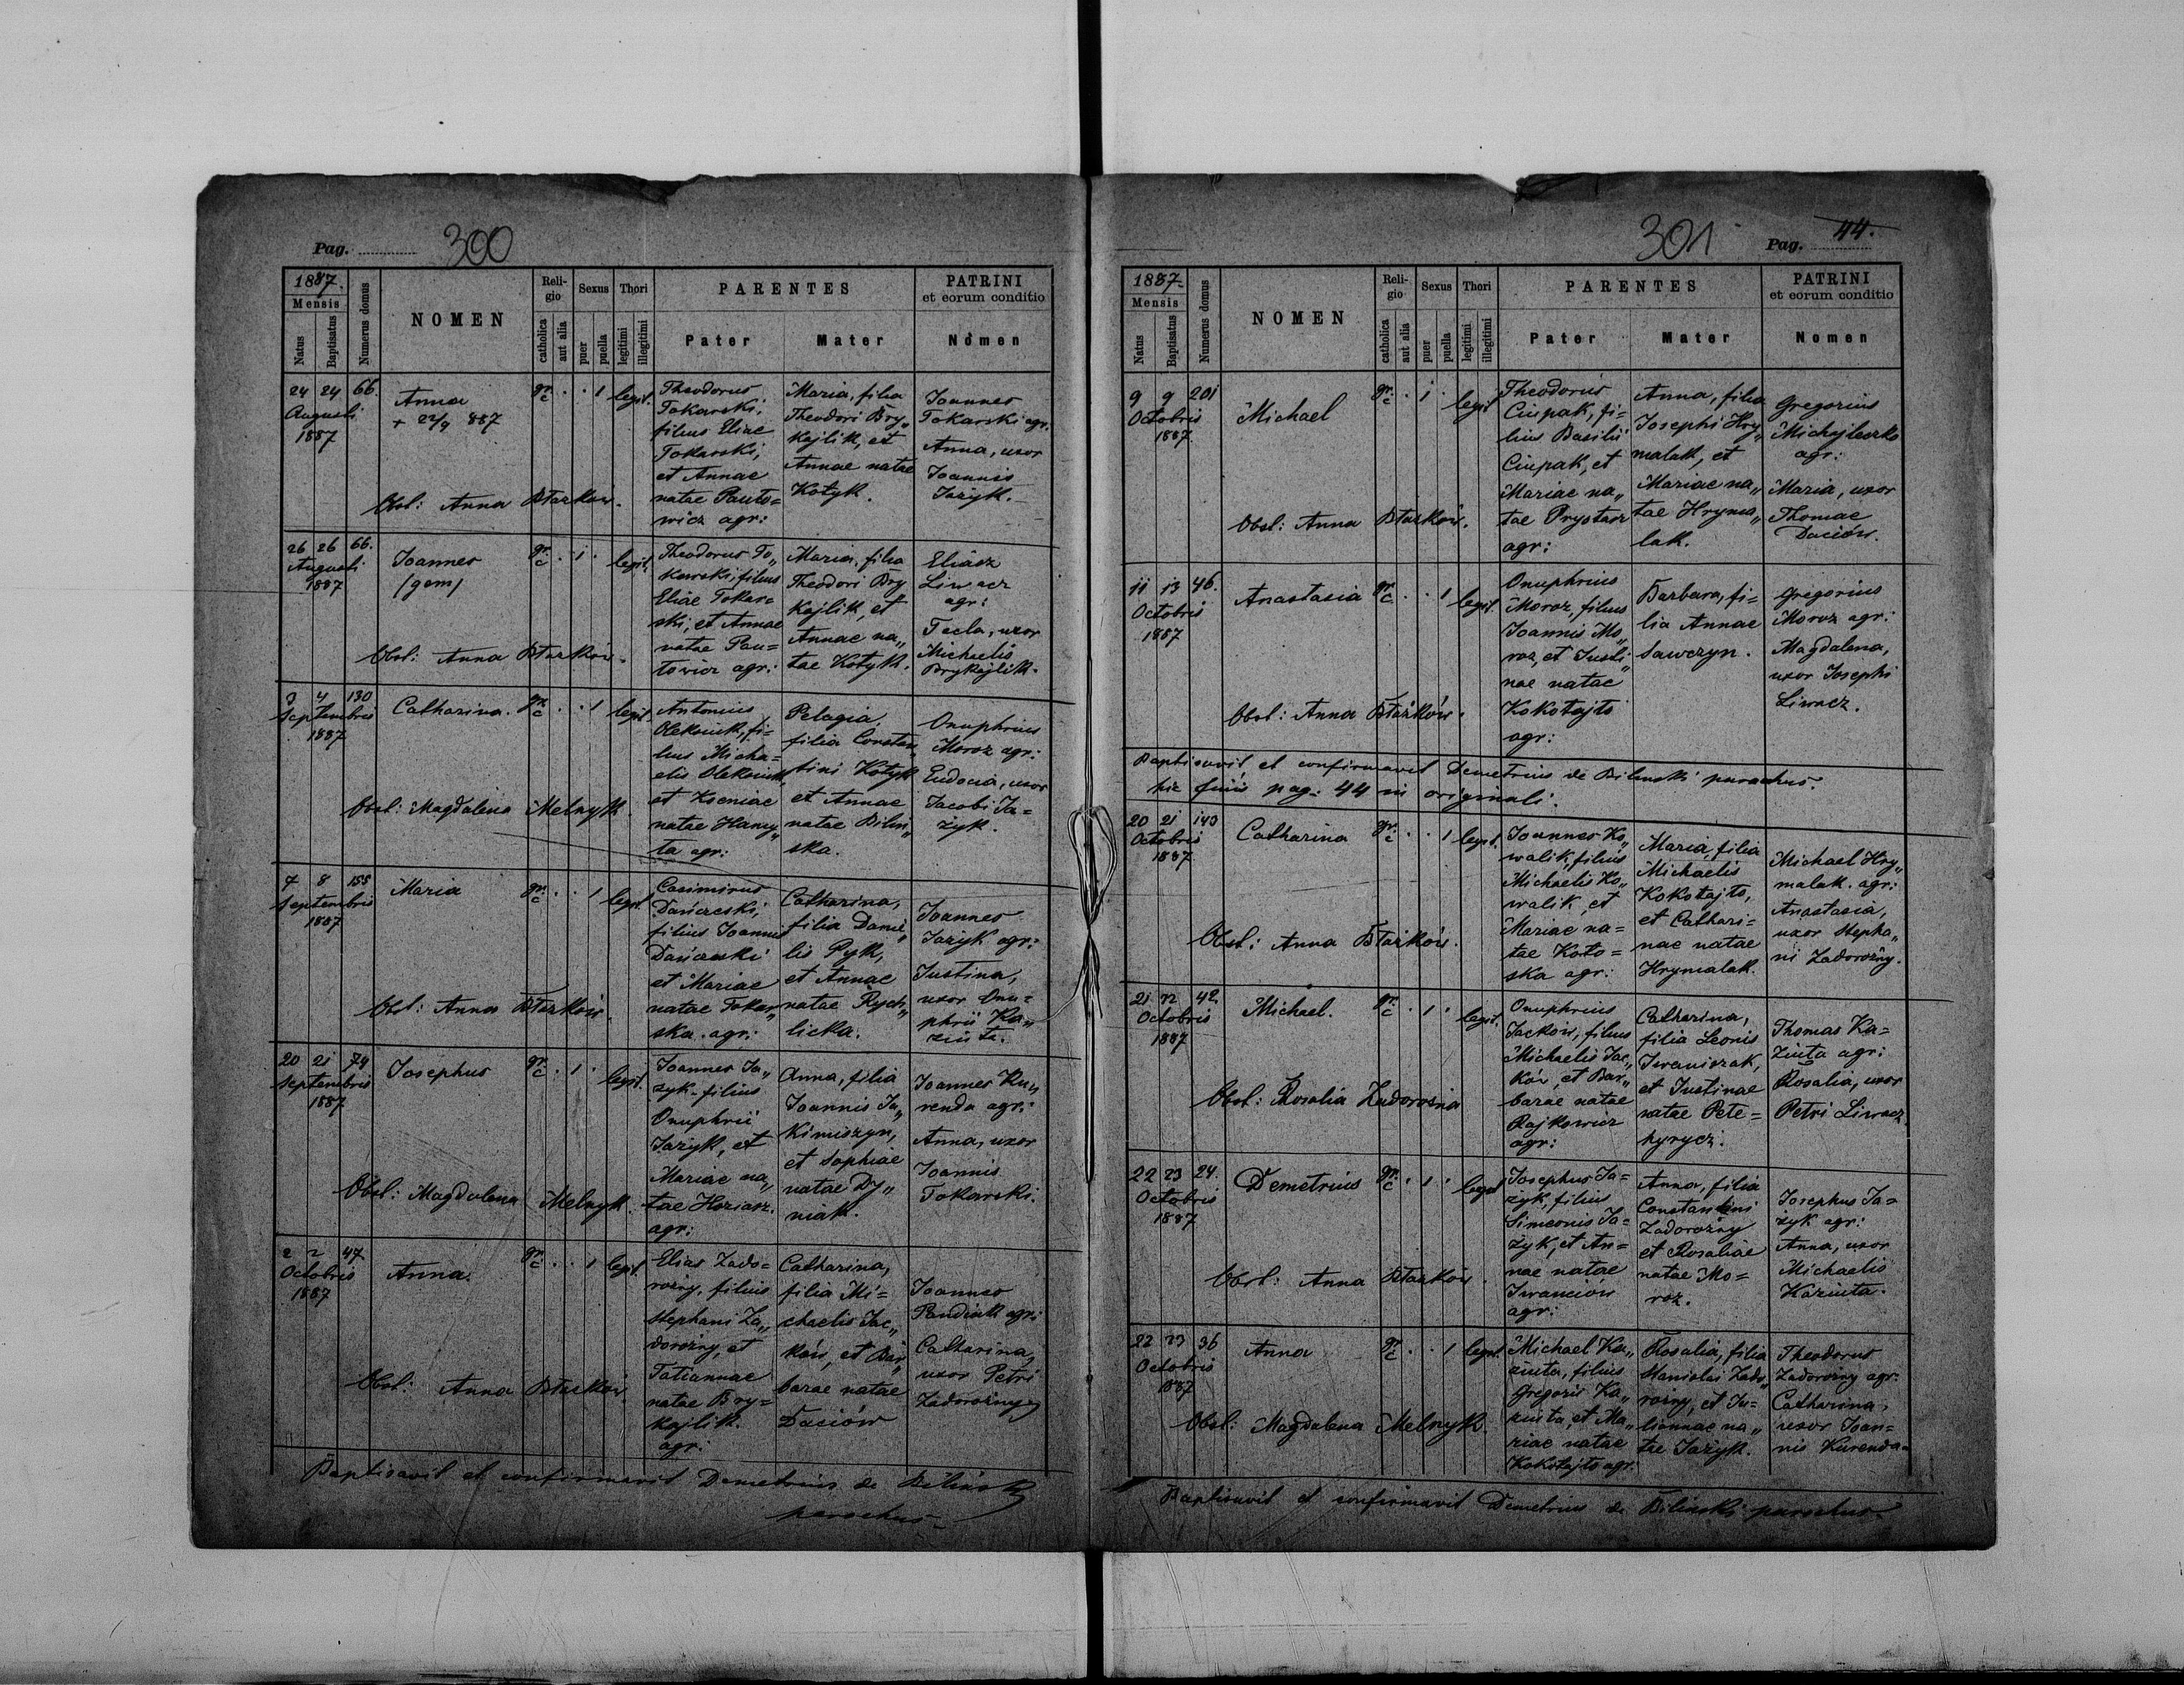 Pag. 300
1887.
Mensis
Natus
Baptisatus
Numerus domus
NOMEN
Religio
catholica
aut alia
Sexus
puer
puella
Thori
legitimi
illegitimi
PARENTES
Pater
Mater
PATRINI
et eorum conditio
Nomen
24 24 66.
Augusti
1887
Anna
+ 22/9 887
gr. c. . . 1 legit.
Obst: Anna Błażków.
Theodorus
Tokarski,
filius Eliae
Tokarski,
et Annae
natae Pauto=
wicz agr:
Maria, filia
Theodori Bry„
kajlik, et
Annae natae
Kotyk.
Joannes
Tokarski agr.
Anna, uxor
Joannis
Jażyk.
26 26 66.
Augusti
1887
Joannes
/gem/
gr. c. . 1 . legit.
Obst: Anna Błażków.
Theodorus To„
karski, filius
Eliae Tokar=
ski, et Annae
natae Pau=
towicz agr:
Maria, filia
Theodori Bry
kajlik, et
Annae na„
tae Kotyk.
Eliasz
Liwacz
agr:
Tecla, uxor
Michaelis
Brykajlik.
3 4 130
Septembris
1887
Catharina.
gr. c. . . 1 legit.
Obst: Magdalena Melnyk.
Antonius
Oleksiuk, fi=
lius Micha=
elis Oleksiuk,
et Kseniae
natae Hawry„
ta agr:
Pelagia,
filia Constan„
tini Kotyk
et Annae
natae Bilin„
ska.
Onuphrius
Moroz agr:
Eudocia, uxor
Jacobi Ja=
żyk.
7 8 155
Septembris
1887
Maria
gr. c. . . 1 legit.
Obst: Anna Błażków.
Casimirus
Dańczeski,
filius Joannis
Dańczeski
et Mariae
natae Tokar„
ska. agr:
Catharina,
filia Danie„
lis Pyk,
et Annae
natae Rych„
licka.
Joannes
Jażyk agr:
Justina,
uxor Onu=
phrii Ka„
ziuta.
20 21 74
Septembris
1887
Josephus
gr. c. . 1 . legit.
Obst: Magdalena Melnyk.
Joannes Ja„
żyk, filius
Onuphrii
Jażyk, et
Mariae na„
tae Koziasz.
agr:
Anna, filia
Joannis Ja„
kimiszyn,
et Sophiae
natae Dy„
niak.
Joannes Ku„
renda agr:
Anna, uxor
Joannis
Tokarski.
2 2 47.
Octobris
1887
Anna.
gr. c. . . 1 legit.
Obst: Anna Błażków.
Elias Zado=
rożny, filius
Stephani Za„
dorożny, et
Tatiannae
natae Bry=
kajlik.
agr:
Catharina,
filia Mi=
chaelis Jac„
ków, et Bar„
barae natae
Daciów
Joannes
Pandiak agr:
Catharina,
uxor Petri
Zadorożny
Baptisavit et confirmavit Demetrius de Biliński
parochus.
301 Pag. 44.
1887.
Mensis
Natus
Baptisatus
Numerus domus
NOMEN
Religio
catholica
aut alia
Sexus
puer
puella
Thori
legitimi
illegitimi
PARENTES
Pater
Mater
PATRINI
et eorum conditio
Nomen
9 9 201
Octobris
1887.
Michael
gr. c. . 1 . legit
Obst: Anna Błażków.
Theodorus
Ciupak, fi=
lius Basilii
Ciupak, et
Mariae na„
tae Prystasz
agr:
Anna, filia
Josephi Hry„
malak, et
Mariae na„
tae Hryma„
lak.
Gregorius
Michajleczko
agr:
Maria, uxor
Thomae
Daciów.
11 13 46.
Octobris
1887
Anastasia
gr. c. . . 1 legit.
Obst: Anna Błażków.
Onuphrius
Moroz, filius
Joannis Mo„
roz, et Justi„
nae natae
Kokotajło
agr:
Barbara, fi=
lia Annae
Sawczyn.
Gregorius
Moroz agr:
Magdalena,
uxor Josephi
Liwacz.
Baptisavit et confirmavit Demetrius de Bilinski parochus.
hic finis pag: 44 in originali.
20 21 143
Octobris
1887
Catharina
gr. c. . . 1 legit.
Obst: Anna Błażków.
Joannes Ko„
walik, filius
Michaelis Ko„
walik, et
Mariae na=
tae Koto=
ska agr:
Maria, filia
Michaelis
Kokotajło,
et Cathari=
nae natae
Hrymalak.
Michael Hry„
malak. agr:
Anastasia,
uxor Stepha„
ni Zadorożny.
21 22 42.
Octobris
1887
Michael.
gr. c. . 1 . legit.
Obst: Rosalia Zadorożna
Onuphrius
Jackow, filius
Michaelis Jac„
ków, et Bar„
barae natae
Rajkowicz
agr:
Catharina,
filia Leonis
Iwaniszak,
et Justinae
natae Pete=
hyrycz.
Thomas Ka=
ziuta agr:
Rosalia, uxor
Petri Liwacz.
22 23 24.
Octobris
1887
Demetrius
gr. c. . 1 . legit
Obst: Anna Błażków.
Josephus Ja=
żyk, filius
Simeonis Ja=
żyk, et An=
nae natae
Iwanciów
agr:
Anna, filia
Constantini
Zadorożny
et Rosaliae
natae Mo=
roz.
Josephus Ja=
żyk agr:
Anna, uxor
Michaelis
Kaziuta.
22 23 36
Octobris
1887
Anna
gr. c. . . 1 legit.
Obst: Magdalena Melnyk.
Michael Ka„
ziuta, filius
Gregorii Ka„
ziuta, et Ma„
riae natae
Kokotajło agr:
Rosalia, filia
Stanislai Zado„
rożny, et Ju=
liannae na„
tae Jażyk.
Theodorus
Zadorożny agr:
Catharina,
uxor Joan=
nis Kurenda
Baptisavit et confirmavit Demetrius de Biliński parochus.